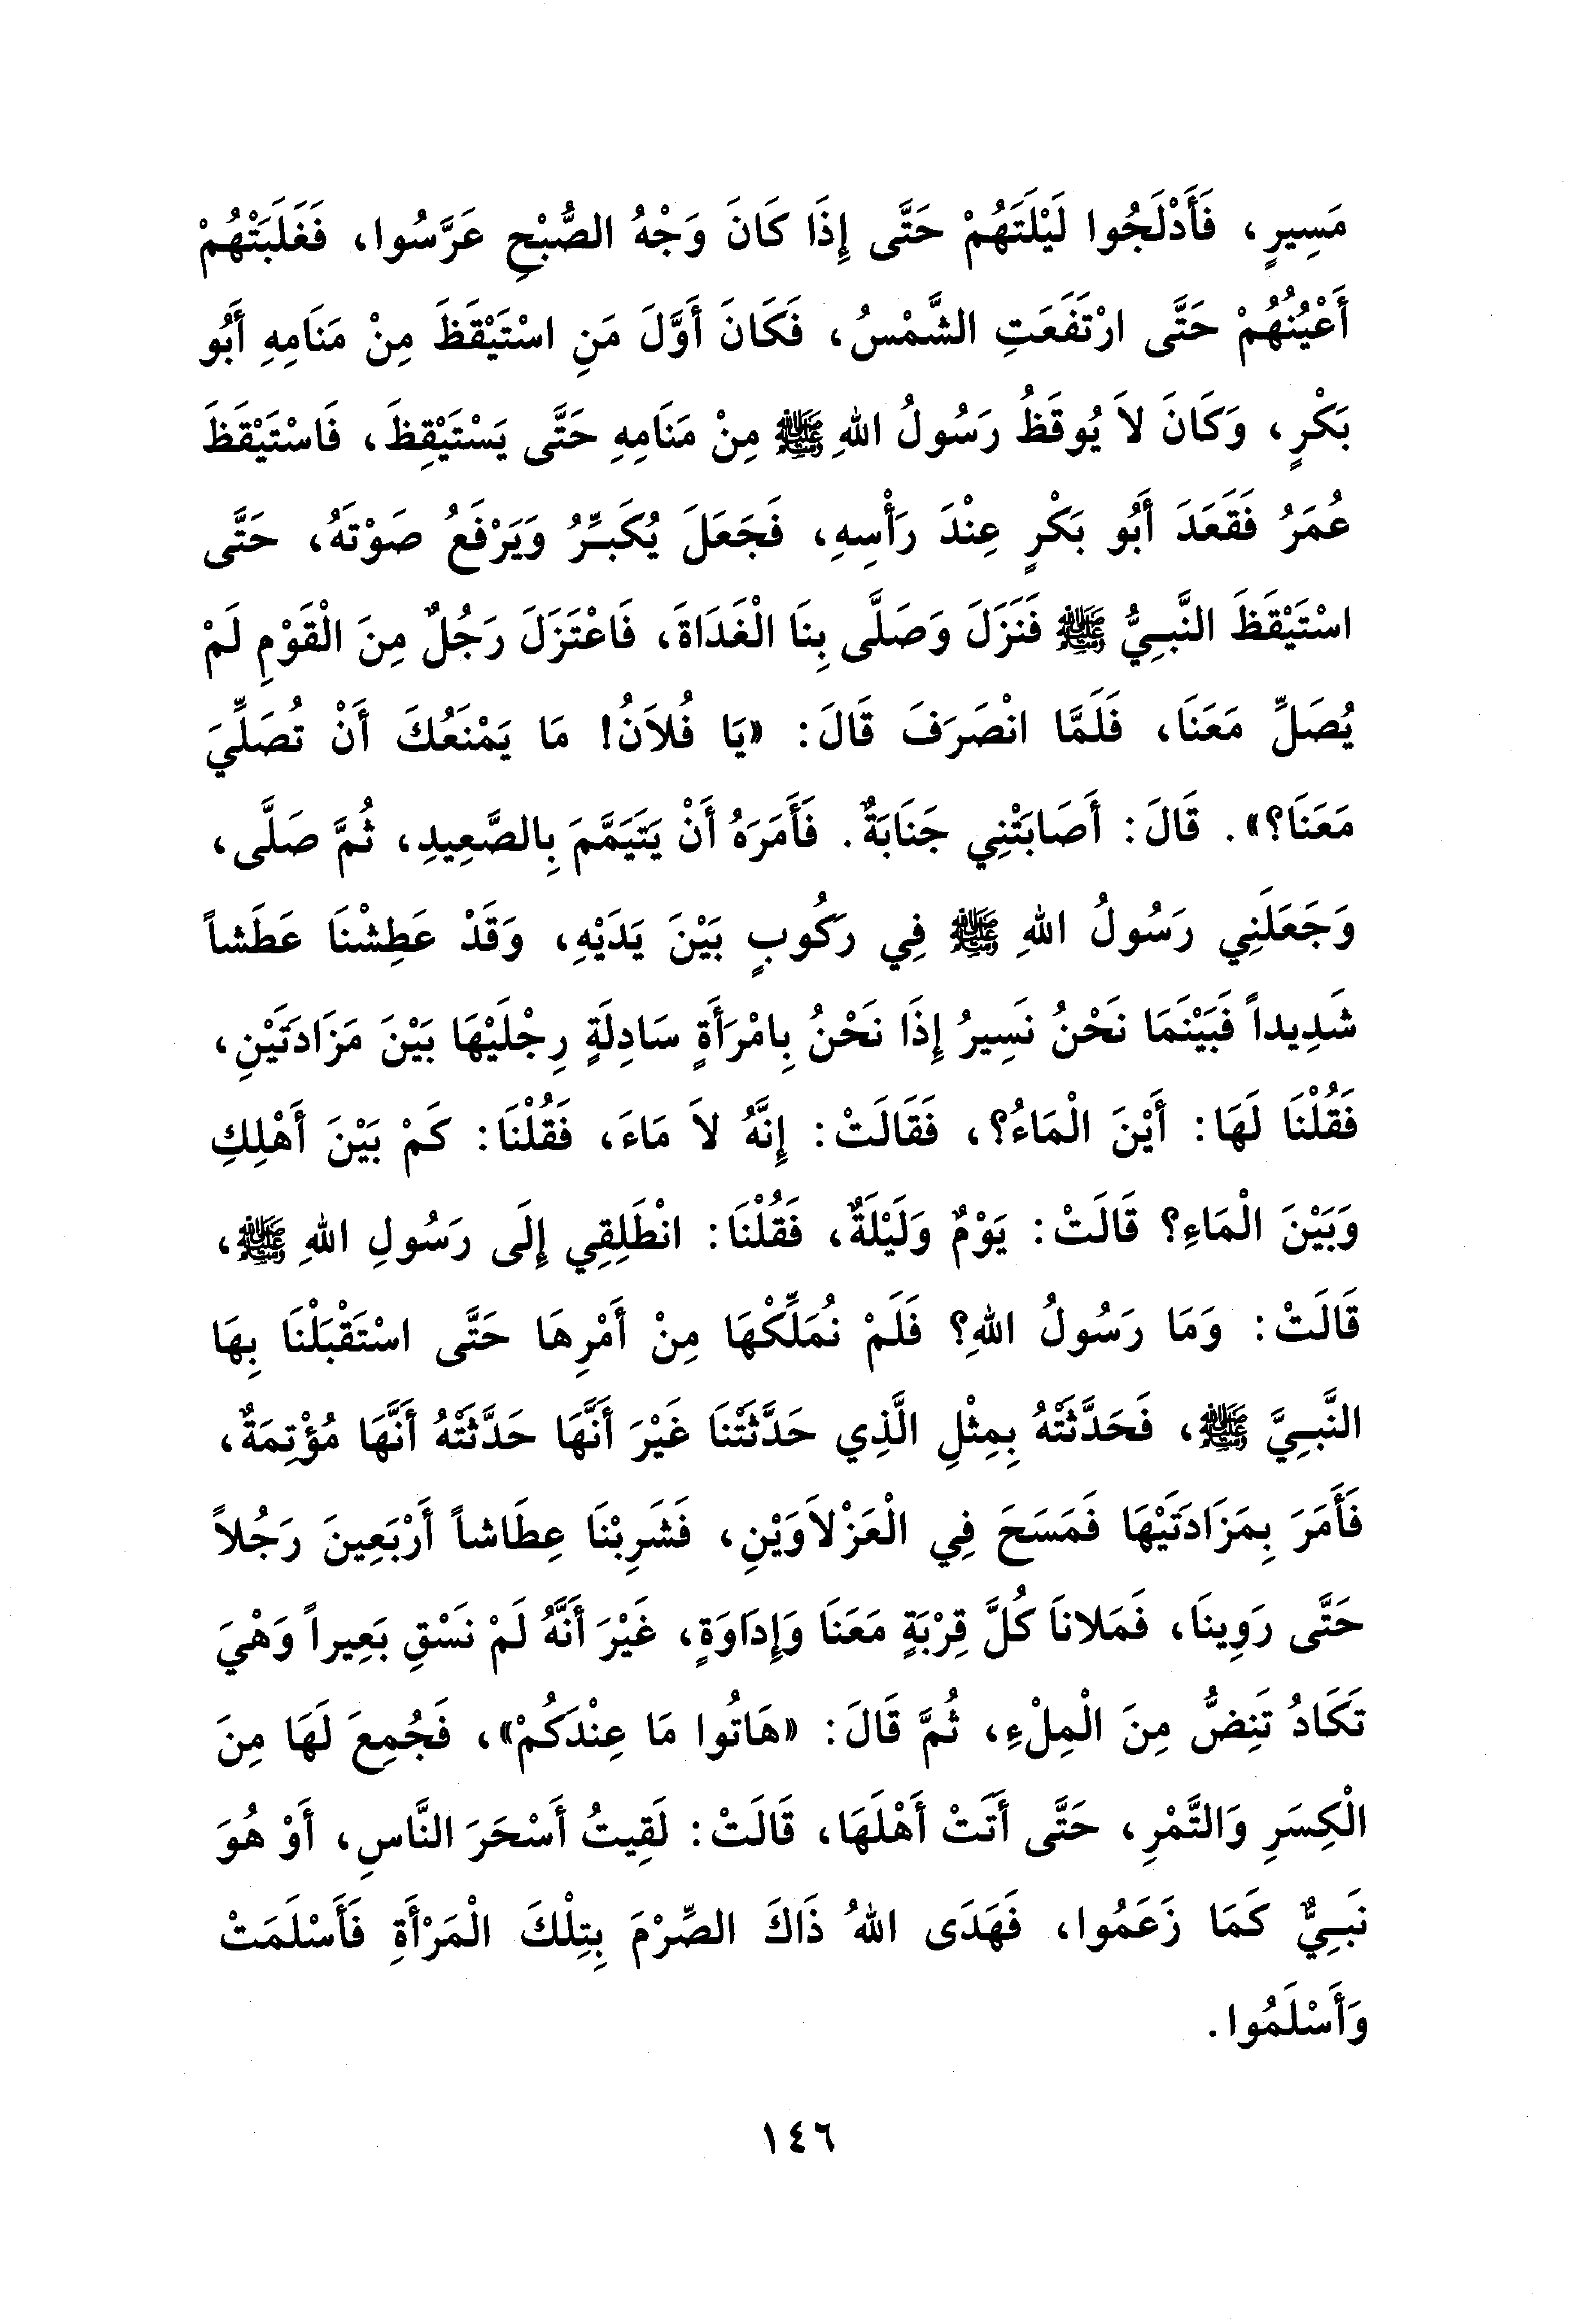 مَسِيرٍ، فَأَدْلَجُوا لَيْلَتَهُمْ حَتَّى إِذَا كَانَ وَجْهُ الصُّبْحِ عَرَّسُوا، فَغَلَبَتْهُمْ
أَعْيُنُهُمْ حَتَّى ارْتَفَعَتِ الشَّمْسُ، فَكَانَ أَوَّلَ مَنِ اسْتَيْقَظَ مِنْ مَنَامِهِ أَبُو
بَكْرٍ، وَكَانَ لاَ يُوقَظُ رَسُولُ اللهِ ﷺ مِنْ مَنَامِهِ حَتَّى يَسْتَيْقِظَ، فَاسْتَيْقَظَ
عُمَرُ فَقَعَدَ أَبُو بَكْرٍ عِنْدَ رَأْسِهِ، فَجَعَلَ يُكَبِّرُ وَيَرْفَعُ صَوْتَهُ، حَتَّى
اسْتَيْقَظَ النَّبِيُّ ﷺ فَنَزَلَ وَصَلَّى بِنَا الْغَدَاةَ، فَاعْتَزَلَ رَجُلٌ مِنَ الْقَوْمِ لَمْ
يُصَلِّ مَعَنَا، فَلَمَّا انْصَرَفَ قَالَ: «يَا فُلاَنُ! مَا يَمْنَعُكَ أَنْ تُصَلِّيَ
مَعَنَا؟». قَالَ: أَصَابَتْنِي جَنَابَةٌ. فَأَمَرَهُ أَنْ يَتَيَمَّمَ بِالصَّعِيدِ، ثُمَّ صَلَّى،
وَجَعَلَنِي رَسُولُ اللهِ ﷺ فِي رَكُوبٍ بَيْنَ يَدَيْهِ، وَقَدْ عَطِشْنَا عَطَشاً
شَدِيداً فَبَيْنَمَا نَحْنُ نَسِيرُ إِذَا نَحْنُ بِامْرَأَةٍ سَادِلَةٍ رِجْلَيْهَا بَيْنَ مَزَادَتَيْنِ،
فَقُلْنَا لَهَا: أَيْنَ الْمَاءُ؟، فَقَالَتْ: إِنَّهُ لاَ مَاءَ، فَقُلْنَا: كَمْ بَيْنَ أَهْلِكِ
وَبَيْنَ الْمَاءِ؟ قَالَتْ: يَوْمٌ وَلَيْلَةٌ، فَقُلْنَا: انْطَلِقِي إِلَى رَسُولِ اللهِ ﷺ،
قَالَتْ: وَمَا رَسُولُ اللهِ؟ فَلَمْ نُمَلِّكْهَا مِنْ أَمْرِهَا حَتَّى اسْتَقْبَلْنَا بِهَا
النَّبِيَّ ﷺ، فَحَدَّثَتْهُ بِمِثْلِ الَّذِي حَدَّثَتْنَا غَيْرَ أَنَّهَا حَدَّثَتْهُ أَنَّهَا مُؤْتِمَةٌ،
فَأَمَرَ بِمَزَادَتَيْهَا فَمَسَحَ فِي الْعَزْلاَوَيْنِ، فَشَرِبْنَا عِطَاشاً أَرْبَعِينَ رَجُلاً
حَتَّى رَوِينَا، فَمَلانَا كُلَّ قِرْبَةٍ مَعَنَا وَإِدَاوَةٍ، غَيْرَ أَنَّهُ لَمْ نَسْقِ بَعِيراً وَهْيَ
تَكَادُ تَنِضُّ مِنَ الْمِلْءِ، ثُمَّ قَالَ: «هَاتُوا مَا عِنْدَكُمْ»، فَجُمِعَ لَهَا مِنَ
الْكِسَرِ وَالتَّمْرِ، حَتَّى أَتَتْ أَهْلَهَا، قَالَتْ: لَقِيتُ أَسْحَرَ النَّاسِ، أَوْ هُوَ
نَبِيٌّ كَمَا زَعَمُوا، فَهَدَى اللهُ ذَاكَ الصِّرْمَ بِتِلْكَ الْمَرْأَةِ فَأَسْلَمَتْ
وَأَسْلَمُوا.
١٤٦